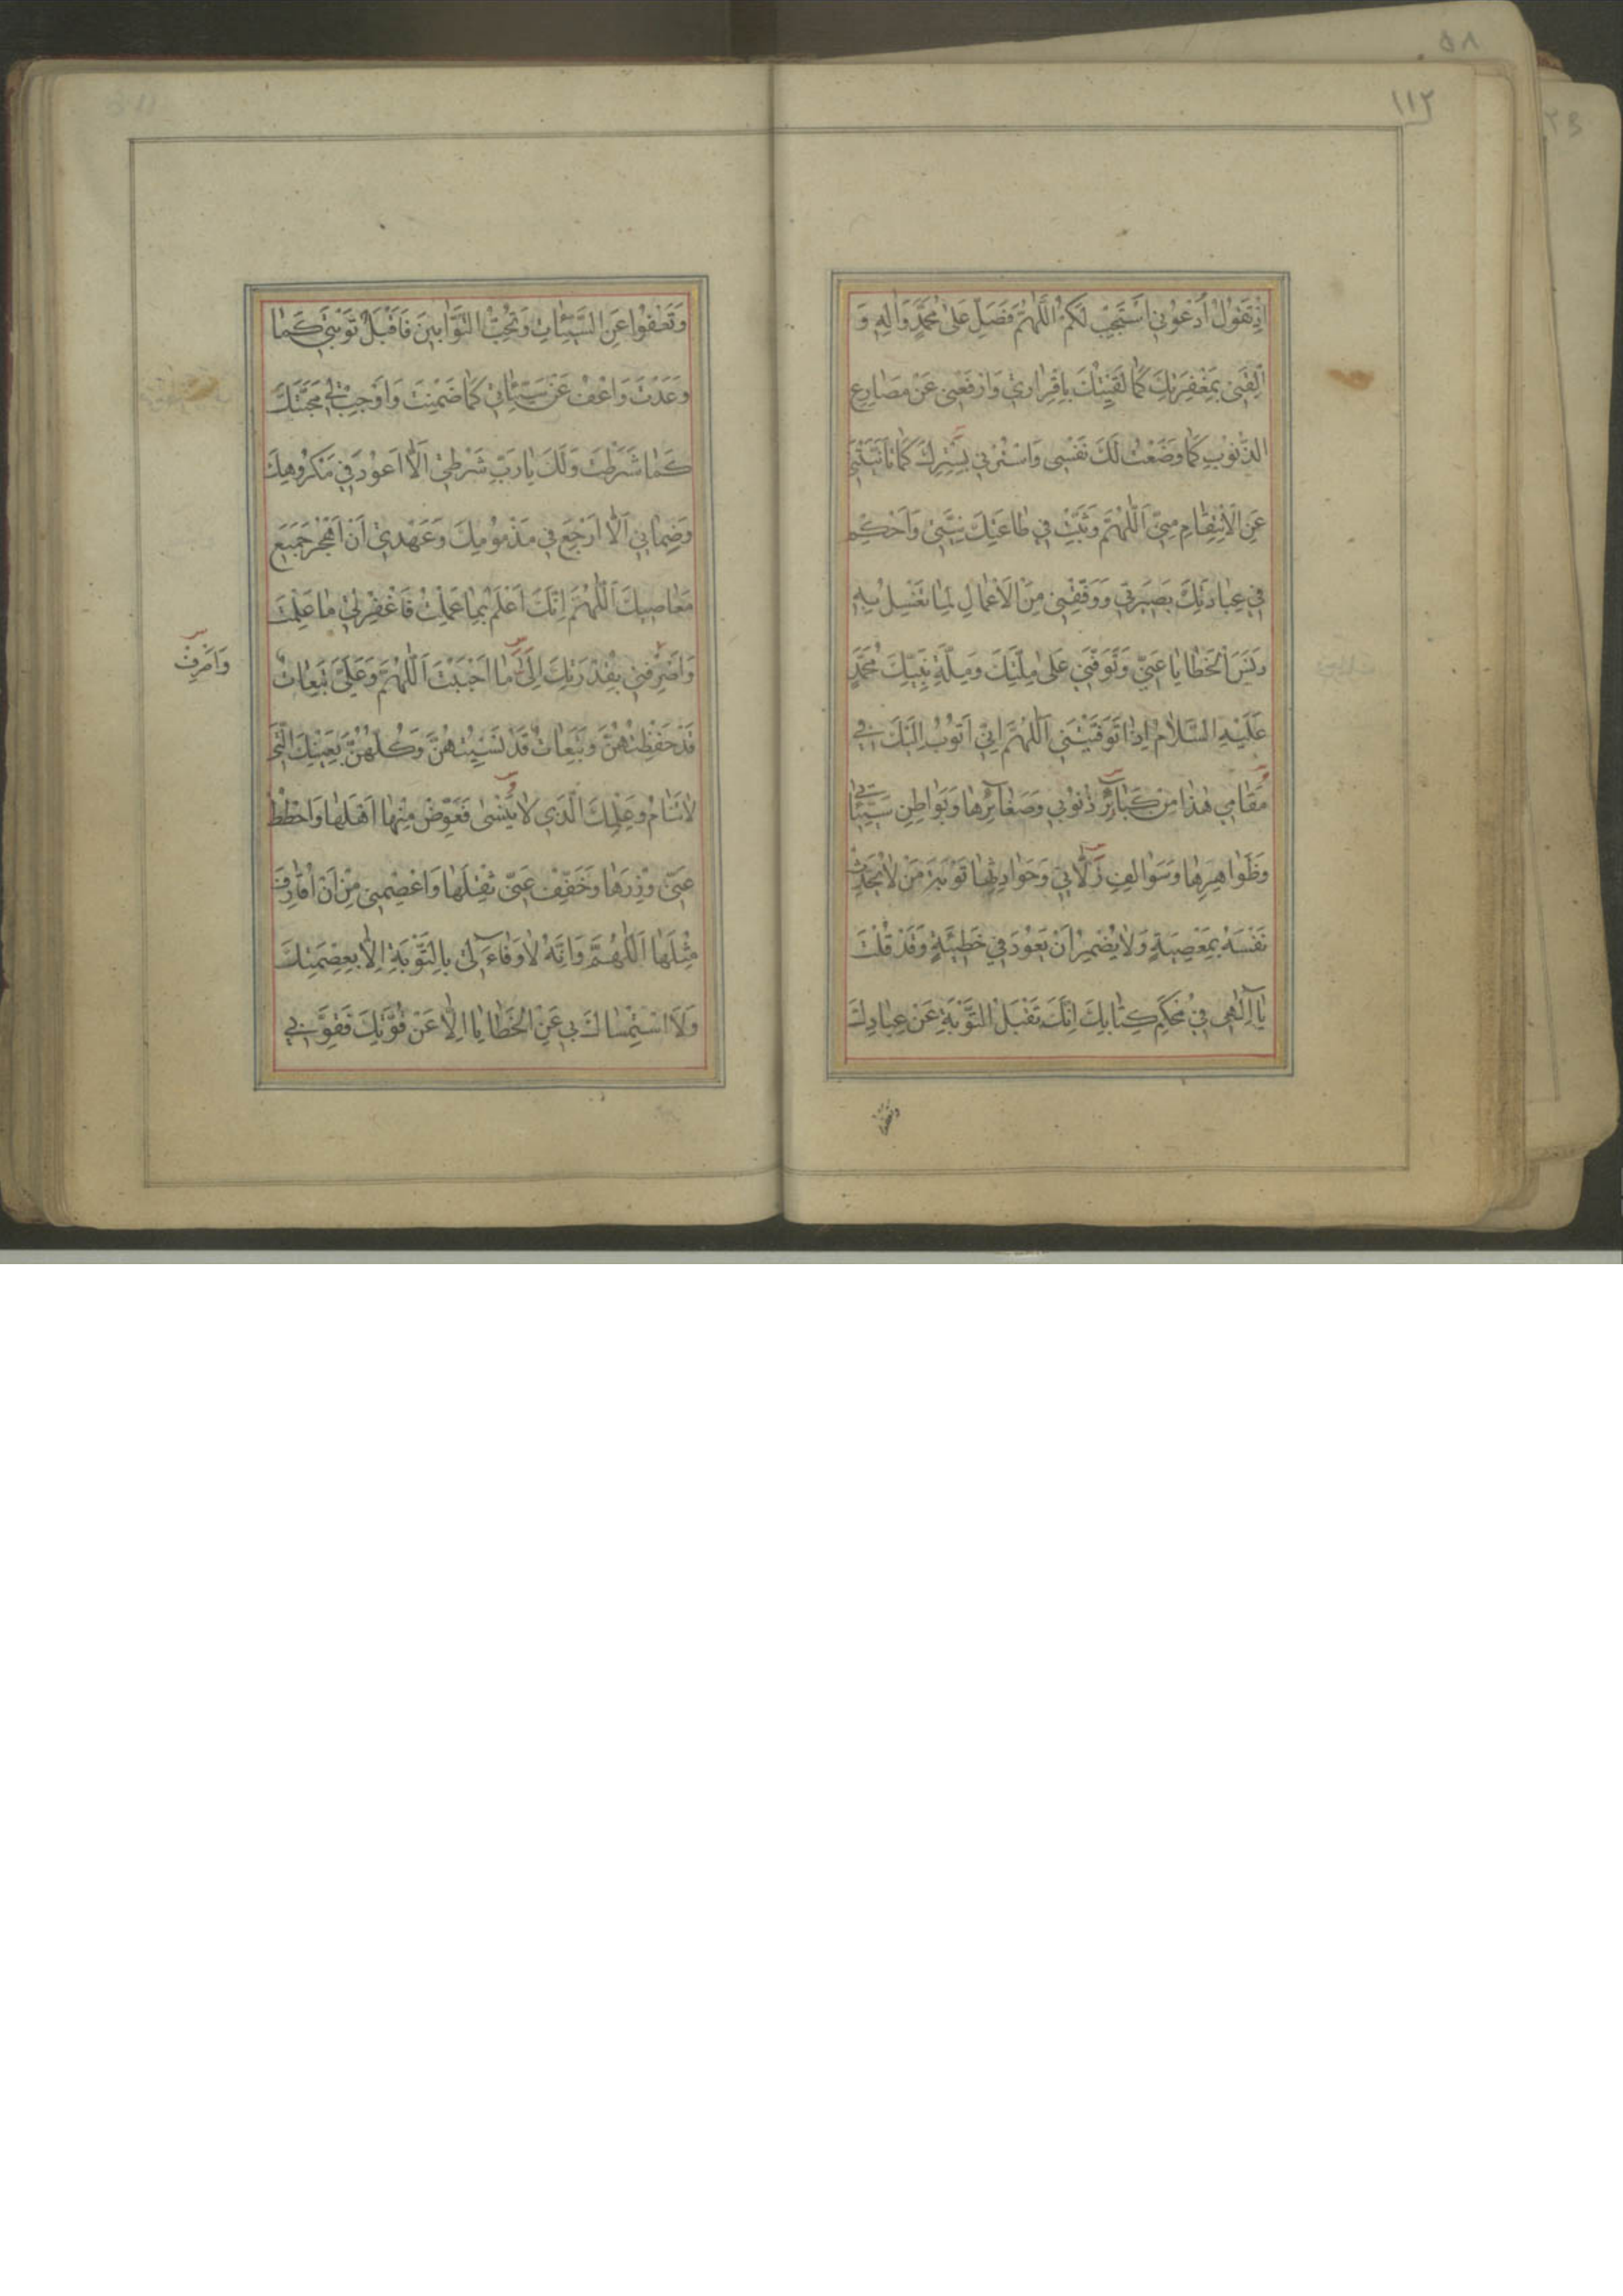 ١١٢
اِذْ تَقُولُ اُدْعُونِي اَسْتَجِبْ لَكُمْ اَللّٰهُمَّ فَصَلِّ عَلٰى مُحَمَّدٍ وَاٰلِهِ وَ
اَلْقِنِي بِمَغْفِرَتِكَ كَمٰا لَقِيتُكَ بِاِقْرٰارِي وَارْفَعْنِي عَنْ مَصٰارِعِ
الذُّنُوبِ كَمٰا وَضَعْتُ لَكَ نَفْسِي وَاسْتُرْنِي بِسِتْرِكَ كَمٰا تَاَنَّيْتَنِي
عَنِ الْاِنْتِقٰامِ مِنِّي اَللّٰهُمَّ وَثَبِّتْ فِي طٰاعَتِكَ نِيَّتِي وَاَحْكِمْ
فِي عِبٰادَتِكَ بَصِيرَتِي وَوَفِّقْنِي مِنَ الْاَعْمٰالِ لِمٰا تَغْسِلُ بِهِ
دَنَسَ الْخَطٰايٰا عَنِّي وَتَوَفَّنِي عَلٰى مِلَّتِكَ وَمِلَّةِ نَبِيِّكَ مُحَمَّدٍ
عَلَيْهِ السَّلٰامُ اِذٰا تَوَفَّيْتَنِي اَللّٰهُمَّ اِنِّي اَتُوبُ اِلَيْكَ فِي
مَقٰامِي هٰذٰا مِنْ كَبٰائِرِ ذُنُوبِي وَصَغٰائِرِهٰا وَبَوٰاطِنِ سَيِّئٰاتِي
وَظَوٰاهِرِهٰا وَسَوٰالِفِ زَلّٰاتِي وَحَوٰادِثِهٰا تَوْبَةَ مَنْ لٰا يُحَدِّثُ
نَفْسَهُ بِمَعْصِيَةٍ وَلٰا يُضْمِرُ اَنْ يَعُودَ فِي خَطِيئَةٍ وَقَدْ قُلْتَ
يٰا اِلٰهِي فِي مُحْكَمِ كِتٰابِكَ اِنَّكَ تَقْبَلُ التَّوْبَةَ عَنْ عِبٰادِكَ
وتعفوا
وَتَعْفُوا عَنِ السَّيِّئٰاتِ وَتُحِبُّ التَّوّٰابِينَ فَاقْبَلْ تَوْبَتِي كَمٰا
وَعَدْتَ وَاعْفُ عَنْ سَيِّئٰاتِي كَمٰا ضَمِنْتَ وَاَوْجِبْ لِي مَحَبَّتَكَ
كَمٰا شَرَطْتَ وَلَكَ يٰا رَبِّ شَرْطِي اَلّٰا اَعُودَ فِي مَكْرُوهِكَ
وَضَمٰانِي اَلّٰا اَرْجِعَ فِي مَذْمُومِكَ وَعَهْدِي اَنْ اَهْجُرَ جَمِيعَ
مَعٰاصِيكَ اَللّٰهُمَّ اِنَّكَ اَعْلَمُ بِمٰا عَمِلْتُ فَاغْفِرْ لِي مٰا عَلِمْتَ
وَاصْرِفْنِي بِقُدْرَتِكَ اِلٰى مٰا اَحْبَبْتَ اَللّٰهُمَّ وَعَلَيَّ تَبِعٰاتٌ
وَاصْرِفْ
قَدْ حَفِظْتُهُنَّ وَتَبِعٰاتٌ قَدْ نَسِيتُهُنَّ وَكُلُّهُنَّ بِعَيْنِكَ الَّتِي
لٰا تَنٰامُ وَعِلْمِكَ الَّذِي لٰا يَنْسٰى فَعَوِّضْ مِنْهٰا اَهْلَهٰا وَاحْطُطْ
عَنِّي وِزْرَهٰا وَخَفِّفْ عَنِّي ثِقْلَهٰا وَاعْصِمْنِي مِنْ اَنْ اُقٰارِفَ
مِثْلَهٰا اَللّٰهُمَّ وَاِنَّهُ لٰا وَفٰاءَ لِي بِالتَّوْبَةِ اِلّٰا بِعِصْمَتِكَ
وَلَا اسْتِمْسٰاكَ بِي عَنِ الْخَطٰايٰا اِلّٰا عَنْ قُوَّتِكَ فَقَوِّنِي